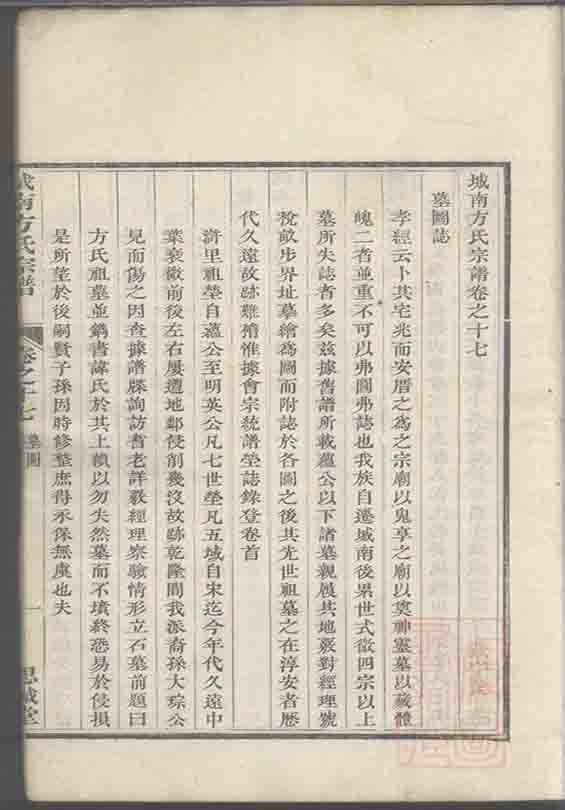 城南方氏宗譜卷之十七
墓圖誌
孝經云卜其宅兆而安厝之為之宗廟以鬼享之廟以裒神靈墓以藏體
魄二者並重不可以弗圖弗誌也我族自遷城南後累世式微四宗以上
墓所失誌者多矣兹據舊譜所載蘊公以下諸墓親履其地嚴對經理號
稅畝步界址墓繪為圖而附誌於各圖之後其先世祖墓之在淳安者歷
代久遠故跡難稽惟據會宗統譜塋誌錄登卷首
滸里祖塋自蘊公至明英公凡七世塋凡五域自宋迄今年代久遠中
葉衰微前後左右屢遭地鄰侵削幾没故跡乾隆間我派裔孫大琮公
見而傷之因查據譜牒詢訪耆老詳覈經理察驗情形立石墓前題曰
方氏祖墓並鐫書諱氏於其上賴以勿失然墓而不墳終恐易於侵損
是所望於後嗣賢子孫因時修整庶得永保無虞也夫
城南方氏宗譜
卷之十七
墓圖
一
思誠堂